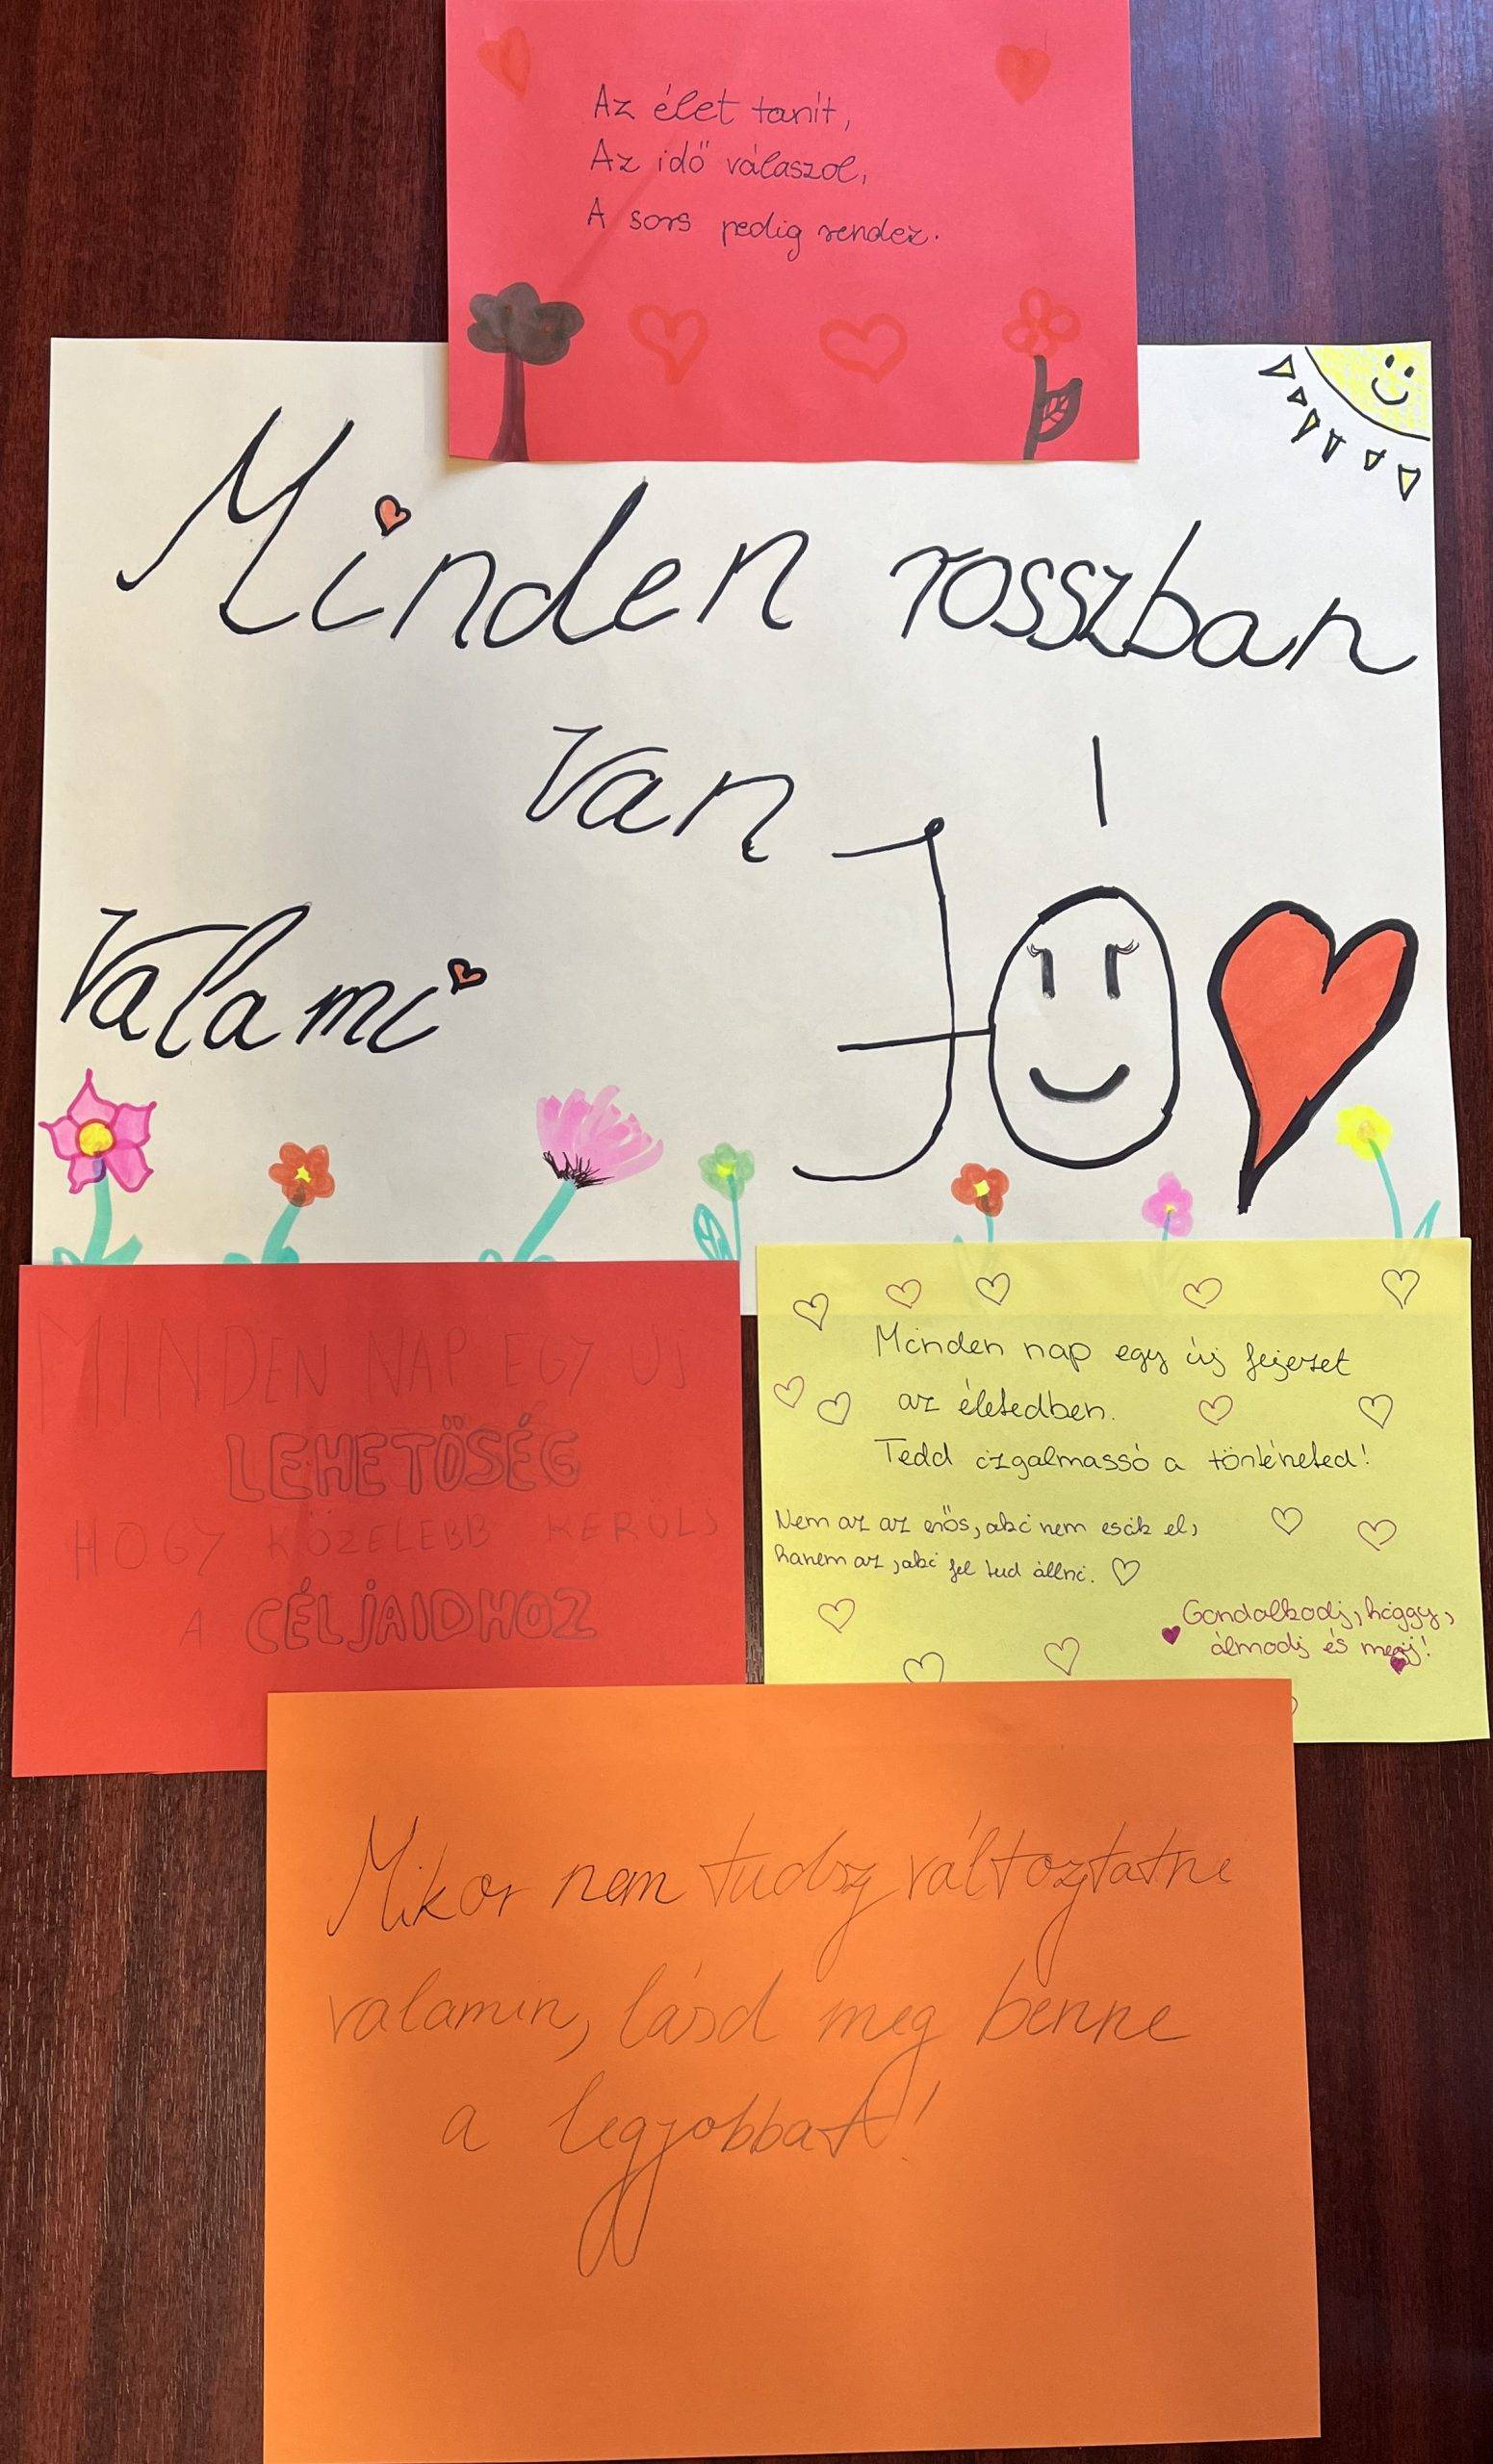 Az élet tanít,
Az idő válaszol,
A sors pedig rendez.
Minden rosszban
Van JÓ
Valami
MINDEN NAP EGY ÚJ
LEHETŐSÉG
HOGY KÖZELEBB KERÜLJ
A CÉLJAIDHOZ
Minden nap egy új fejezet
az életedben.
Tedd izgalmassá a történeted!
Nem az az erős, aki nem esik el,
hanem az, aki fel tud állni.
Gondolkodj, higgy,
álmodj és merj!
Mikor nem tudsz változtatni
valamin, lásd meg benne
a legjobbat!